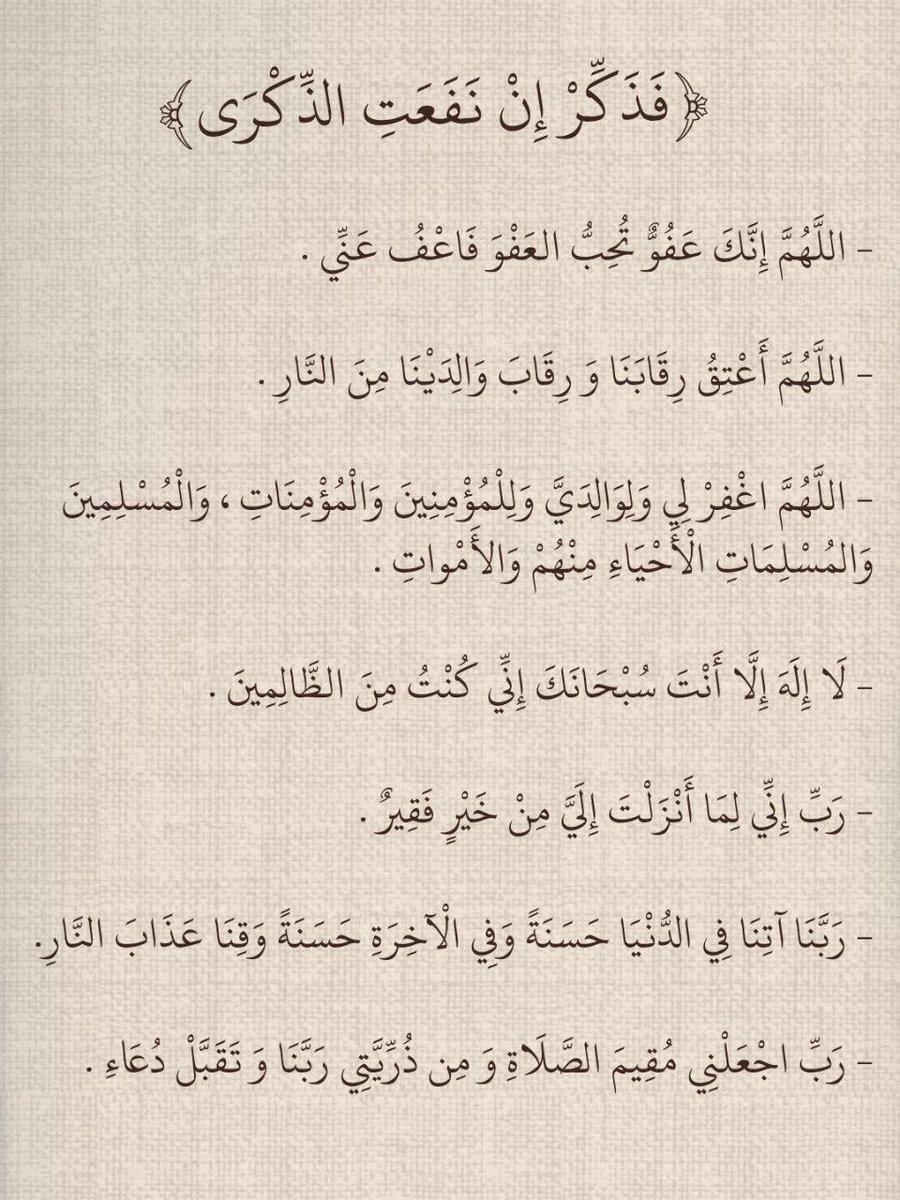 ﴿فَذَكِّرْ إِنْ نَفَعَتِ الذِّكْرَى﴾
- اللَّهُمَّ إِنَّكَ عَفُوٌّ تُحِبُّ العَفْوَ فَاعْفُ عَنِّي .
- اللَّهُمَّ أَعْتِقُ رِقَابَنَا وَ رِقَابَ وَالِدَيْنَا مِنَ النَّارِ .
- اللَّهُمَّ اغْفِرْ لِي وَلِوَالِدَيَّ وَلِلْمُؤْمِنِينَ وَالْمُؤْمِنَاتِ ، وَالْمُسْلِمِينَ
وَالمُسْلِمَاتِ الْأَحْيَاءِ مِنْهُمْ وَالأَمْواتِ .
- لَا إِلَهَ إِلَّا أَنْتَ سُبْحَانَكَ إِنِّي كُنْتُ مِنَ الظَّالِمِينَ .
- رَبِّ إِنِّي لِمَا أَنْزَلْتَ إِلَيَّ مِنْ خَيْرٍ فَقِيرٌ .
- رَبَّنَا آتِنَا فِي الدُّنْيَا حَسَنَةً وَفِي الْآخِرَةِ حَسَنَةً وَقِنَا عَذَابَ النَّارِ.
- رَبِّ اجْعَلْنِي مُقِيمَ الصَّلَاةِ وَ مِن ذُرِّيَّتِي رَبَّنَا وَ تَقَبَّلْ دُعَاءِ .